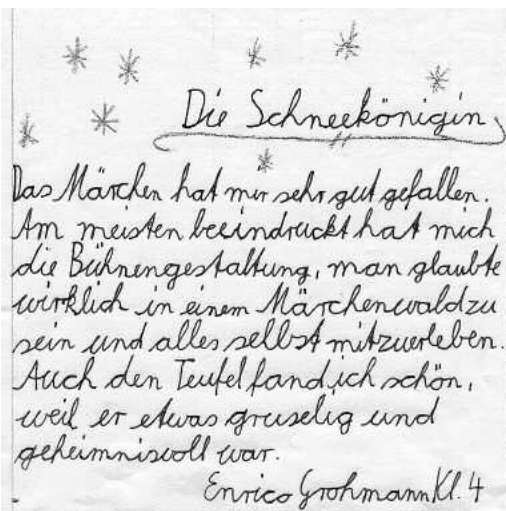 Die Schneekönigin
Das Märchen hat mir sehr gut gefallen.
Am meisten beeindruckt hat mich
die Bühnengestaltung, man glaubte
wirklich in einem Märchenwald zu
sein und alles selbst mitzuerleben.
Auch den Teufel fand ich schön,
weil er etwas gruselig und
geheimnisvoll war.
Enrico Grohmann Kl. 4